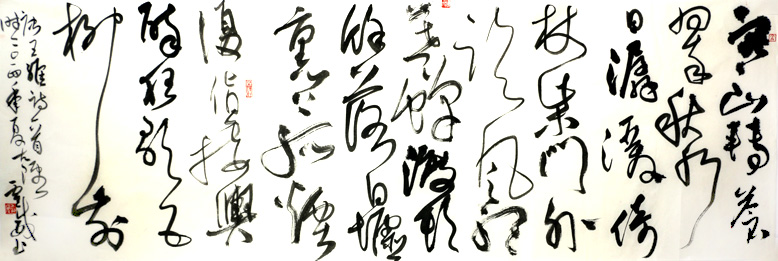 寒山轉蒼
翠秋水
日潺湲倚
杖柴門外
臨風聽
暮蟬渡頭
餘落日墟
里上孤煙
復值接輿
醉狂歌五
柳前
唐王維詩一首
時二〇一四年夏